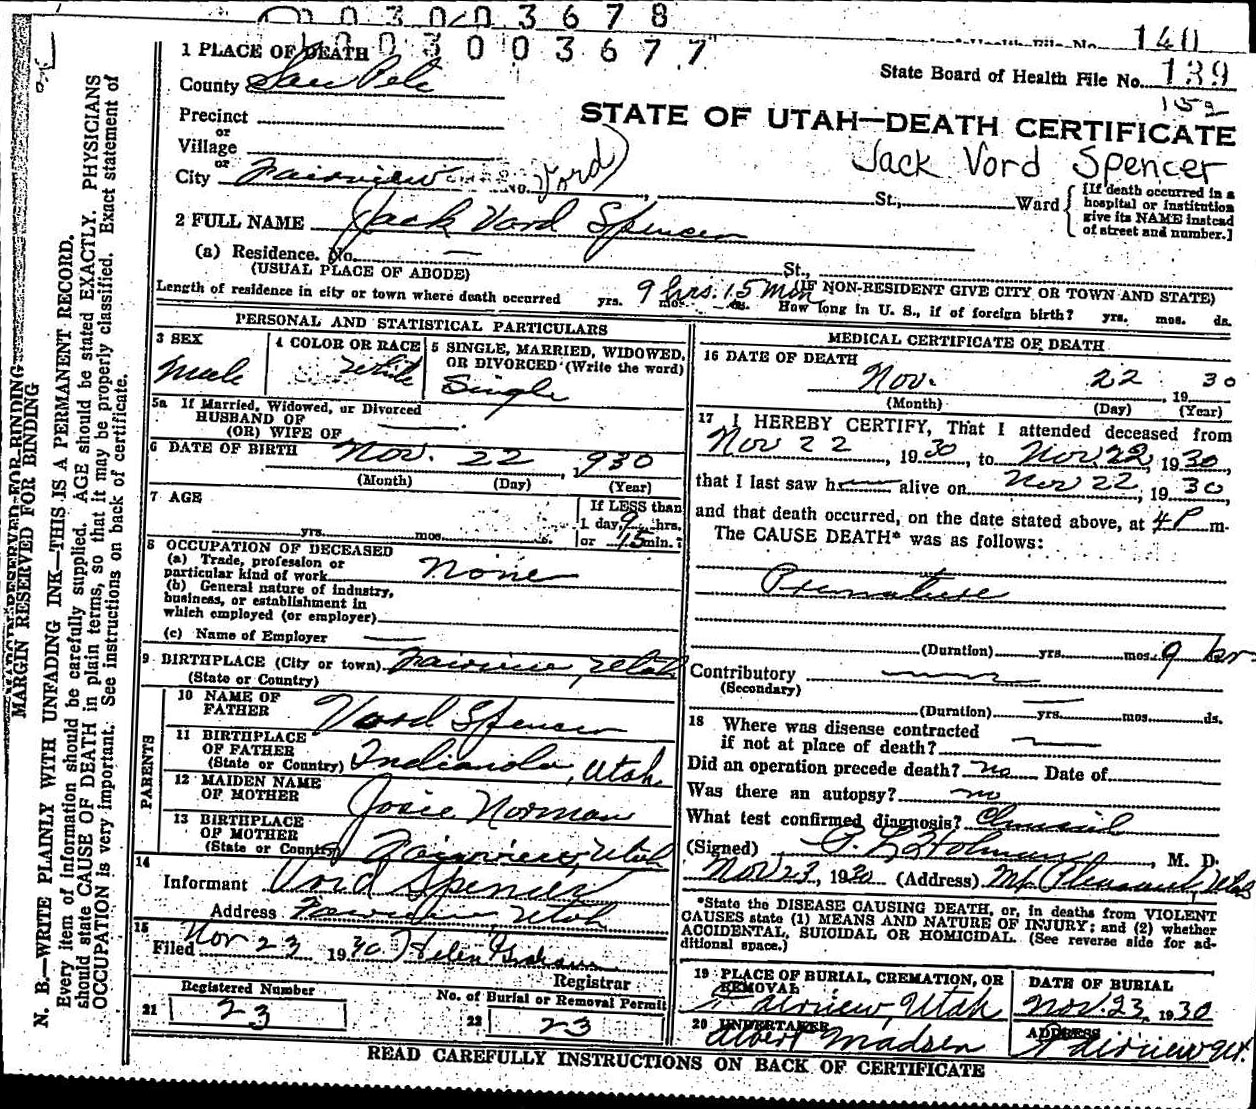 0 0 3 0 0 3 6 7 8
140
1 PLACE OF DEATH
0 0 3 0 0 3 6 7 7
State Board of Health File No. 139
County San Pete
152
Precinct
STATE OF UTAH—DEATH CERTIFICATE
or
Village
Jack Vord Spencer
or
City Fairview No. St., Ward
Vord)
[If death occurred in a
hospital or institution
give its NAME instead
of street and number.]
2 FULL NAME Jack Vord Spencer
(a) Residence. No. — St.,
(USUAL PLACE OF ABODE) (IF NON-RESIDENT GIVE CITY OR TOWN AND STATE)
Length of residence in city or town where death occurred yrs. mos. ds. 9 hrs. 15 min How long in U. S., if of foreign birth? yrs. mos. ds.
PERSONAL AND STATISTICAL PARTICULARS
3 SEX
Male
4 COLOR OR RACE
White
5 SINGLE, MARRIED, WIDOWED,
OR DIVORCED (Write the word)
Single
5a If Married, Widowed, or Divorced
HUSBAND OF
(OR) WIFE OF —
6 DATE OF BIRTH Nov. 22, 930
(Month) (Day) (Year)
7 AGE
yrs. mos.
If LESS than
1 day, 9 hrs.
or 15 min.?
8 OCCUPATION OF DECEASED
(a) Trade, profession or
particular kind of work None
(b) General nature of industry,
business, or establishment in
which employed (or employer)
(c) Name of Employer —
9 BIRTHPLACE (City or town) Fairview, Utah
(State or Country)
PARENTS
10 NAME OF
FATHER Vord Spencer
11 BIRTHPLACE
OF FATHER
(State or Country) Indianola, Utah
12 MAIDEN NAME
OF MOTHER Josie Norman
13 BIRTHPLACE
OF MOTHER
(State or Country) Fairview, Utah
14
Informant Vord Spencer
Address Fairview Utah
15
Filed Nov 23 1930 Helen Graham
Registrar
Registered Number
21 23
No. of Burial or Removal Permit
22 23
MEDICAL CERTIFICATE OF DEATH
16 DATE OF DEATH
Nov. 22 1930
(Month) (Day) (Year)
17 I HEREBY CERTIFY, That I attended deceased from
Nov 22, 1930, to Nov 22, 1930
that I last saw h alive on Nov 22, 1930,
and that death occurred, on the date stated above, at 4 P m.
The CAUSE DEATH* was as follows:
Premature
(Duration) yrs. mos. 9 hr
Contributory
(Secondary)
(Duration) yrs. mos. ds.
18 Where was disease contracted
if not at place of death?
Did an operation precede death? no Date of
Was there an autopsy? no
What test confirmed diagnosis? Clinical
(Signed) P. L. Holman, M. D.
Nov 23, 1930 (Address) Mt Pleasant, Utah
*State the DISEASE CAUSING DEATH, or, in deaths from VIOLENT
CAUSES state (1) MEANS AND NATURE OF INJURY; and (2) whether
ACCIDENTAL, SUICIDAL OR HOMICIDAL. (See reverse side for ad-
ditional space.)
19 PLACE OF BURIAL, CREMATION, OR
REMOVAL
Fairview, Utah
DATE OF BURIAL
Nov. 23, 1930
20 UNDERTAKER
Albert Madsen
ADDRESS
Fairview Ut.
READ CAREFULLY INSTRUCTIONS ON BACK OF CERTIFICATE
MARGIN RESERVED FOR BINDING
MARGIN RESERVED FOR BINDING
N. B.—WRITE PLAINLY WITH UNFADING INK—THIS IS A PERMANENT RECORD.
Every item of information should be carefully supplied. AGE should be stated EXACTLY. PHYSICIANS
should state CAUSE OF DEATH in plain terms, so that it may be properly classified. Exact statement of
OCCUPATION is very important. See instructions on back of certificate.